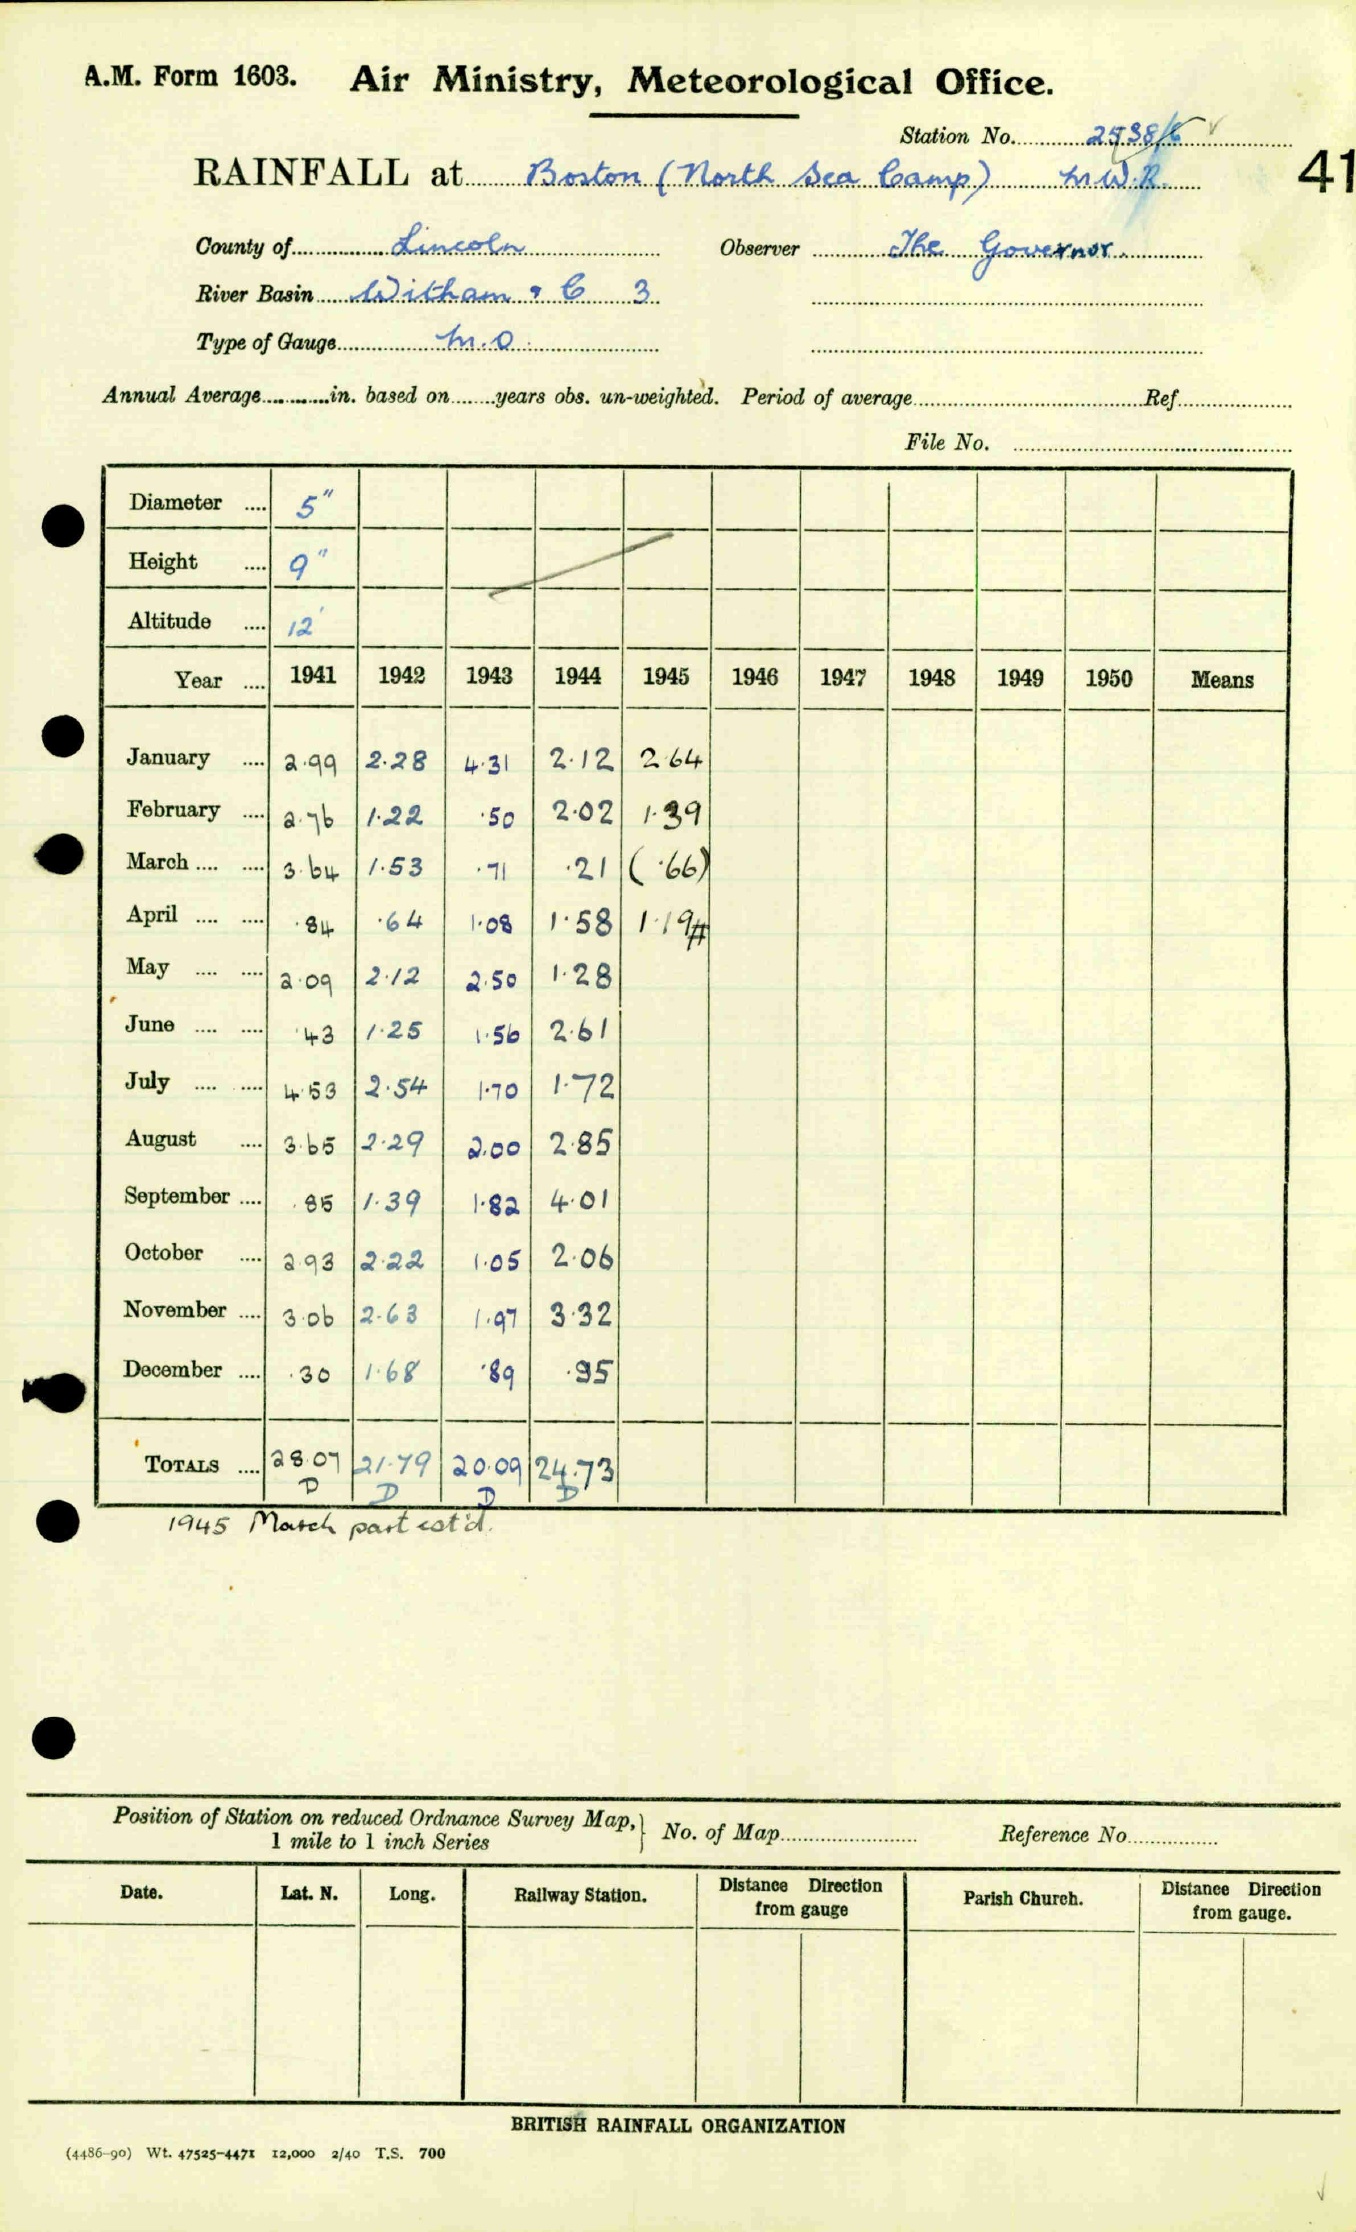 A.M. Form 1603. Air Ministry, Meteorological Office.
Station No.
41
RAINFALL at Boston (North Sea Camp) M.W.R.
County of Lincoln Observer The Governor.
River Basin Witham & C 3
Type of Gauge M.O.
Annual Average in. based on years obs. un-weighted. Period of average Ref
File No.
Diameter .... 5"
Height .... 9"
Altitude .... 12'
Year .... 1941 1942 1943 1944 1945 1946 1947 1948 1949 1950 Means
January .... 2.99 2.28 4.31 2.12 2.64
February .... 2.76 1.22 .50 2.02 1.39
March .... .... 3.64 1.53 .71 .21 (.66)
April .... .... .84 .64 1.08 1.58 1.19#
May .... .... 2.09 2.12 2.50 1.28
June .... .... .43 1.25 1.56 2.61
July .... .... 4.53 2.54 1.70 1.72
August .... 3.65 2.29 2.00 2.85
September .... .85 1.39 1.82 4.01
October .... 2.93 2.22 1.05 2.06
November .... 3.06 2.63 1.97 3.32
December .... .30 1.68 .89 .95
TOTALS .... 28.07 21.79 20.09 24.73
D D D D
1945 March part est'd.
Position of Station on reduced Ordnance Survey Map,
1 mile to 1 inch Series
No. of Map Reference No.
Date. Lat. N. Long. Railway Station. Distance Direction from gauge Parish Church. Distance Direction from gauge.
BRITISH RAINFALL ORGANIZATION
(4486-90) Wt. 47525-4471 12,000 2/40 T.S. 700